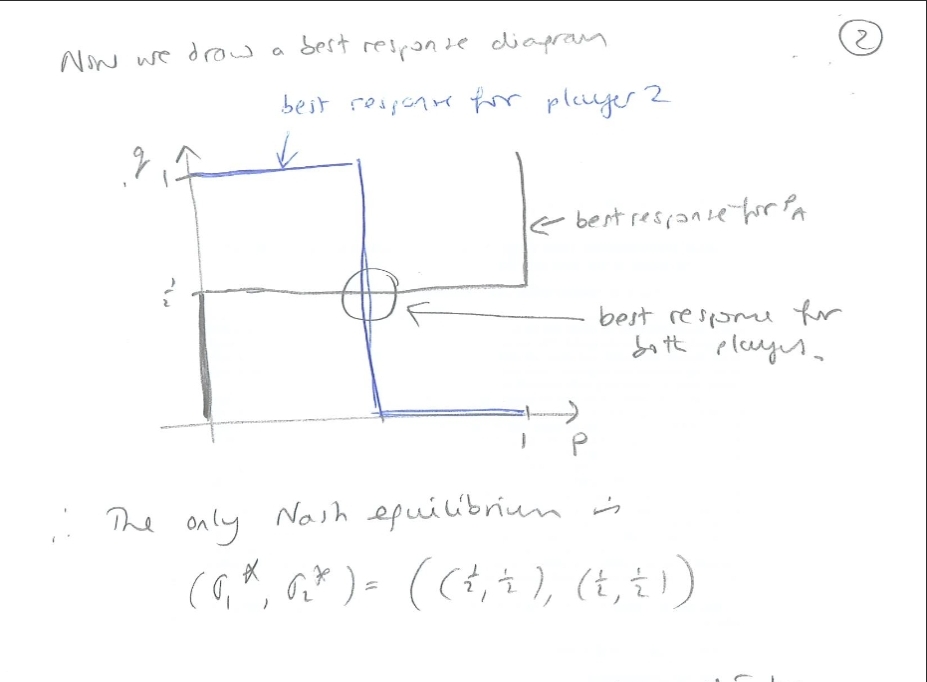 Now we draw a best response diagram
②
best response for player 2
q
1
best response for P_A
1/2
best response for
both players.
1
P
∴ The only Nash equilibrium is
(σ₁*, σ₂*) = ((1/2, 1/2), (1/2, 1/2))